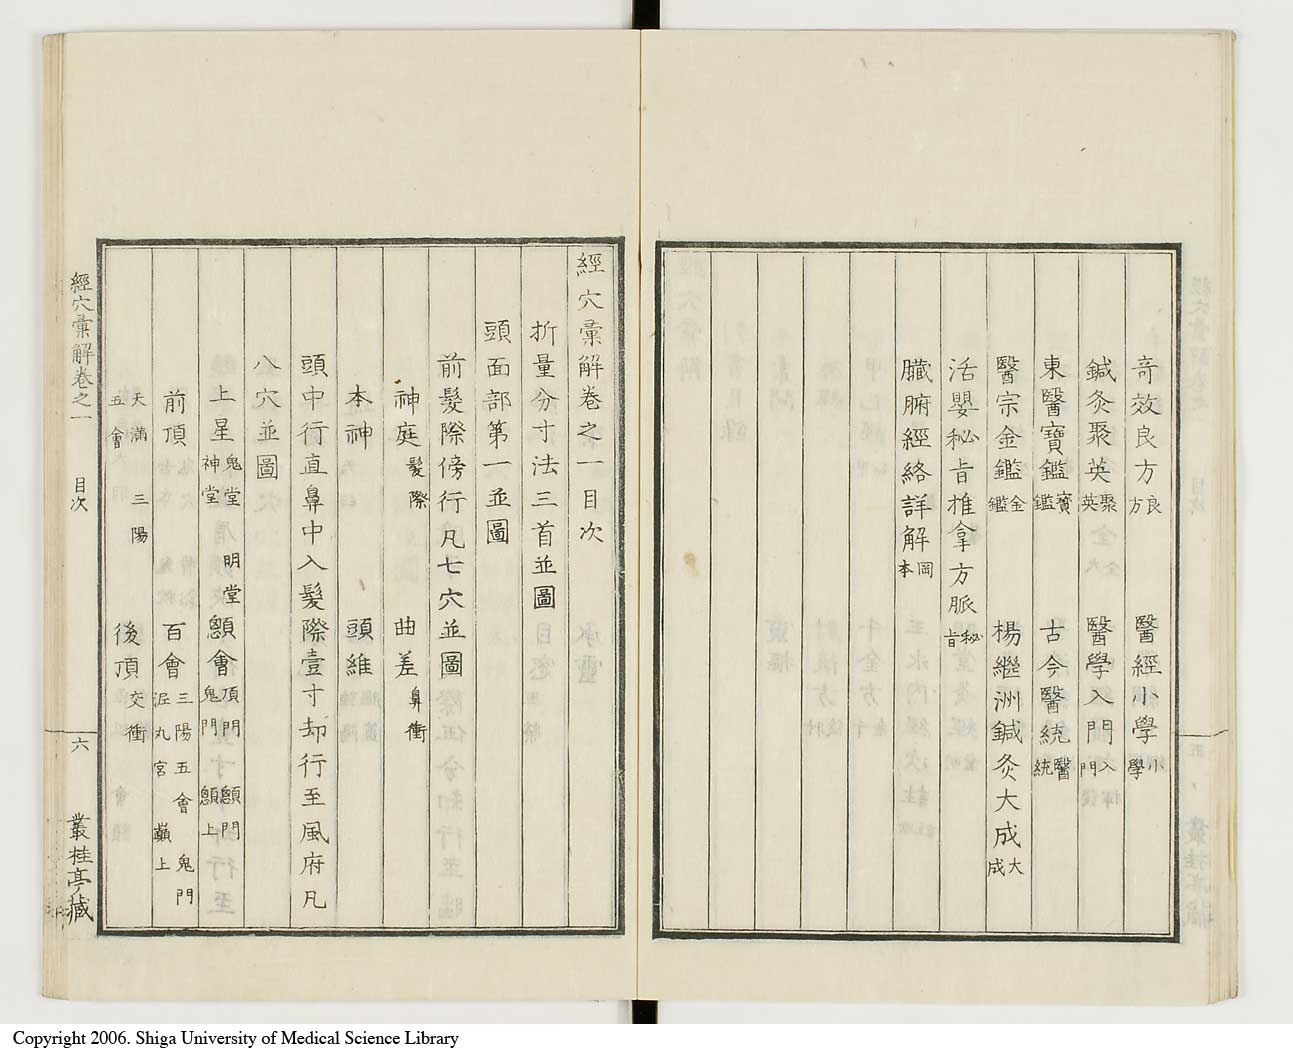 奇效良方 良方 醫經小學 小學
鍼灸聚英 聚英 醫學入門 入門
東醫寶鑑 寶鑑 古今醫統 醫統
醫宗金鑑 金鑑 楊繼洲鍼灸大成 大成
活嬰秘旨推拿方脈 秘旨
臟腑經絡詳解 岡本
經穴彙解卷之一目次
折量分寸法三首並圖
頭面部第一並圖
前髮際傍行凡七穴並圖
神庭 髮際 曲差 鼻衝
本神 頭維
頭中行直鼻中入髮際壹寸却行至風府凡
八穴並圖
上星 鬼堂 明堂 神堂 顖會 頂門 顖門 鬼門 顖上
前頂 百會 三陽五會 鬼門 泥丸宮 巓上
天滿 三陽 五會 後頂 交衝
經穴彙解卷之一 目次 六 叢桂亭藏
Copyright 2006. Shiga University of Medical Science Library